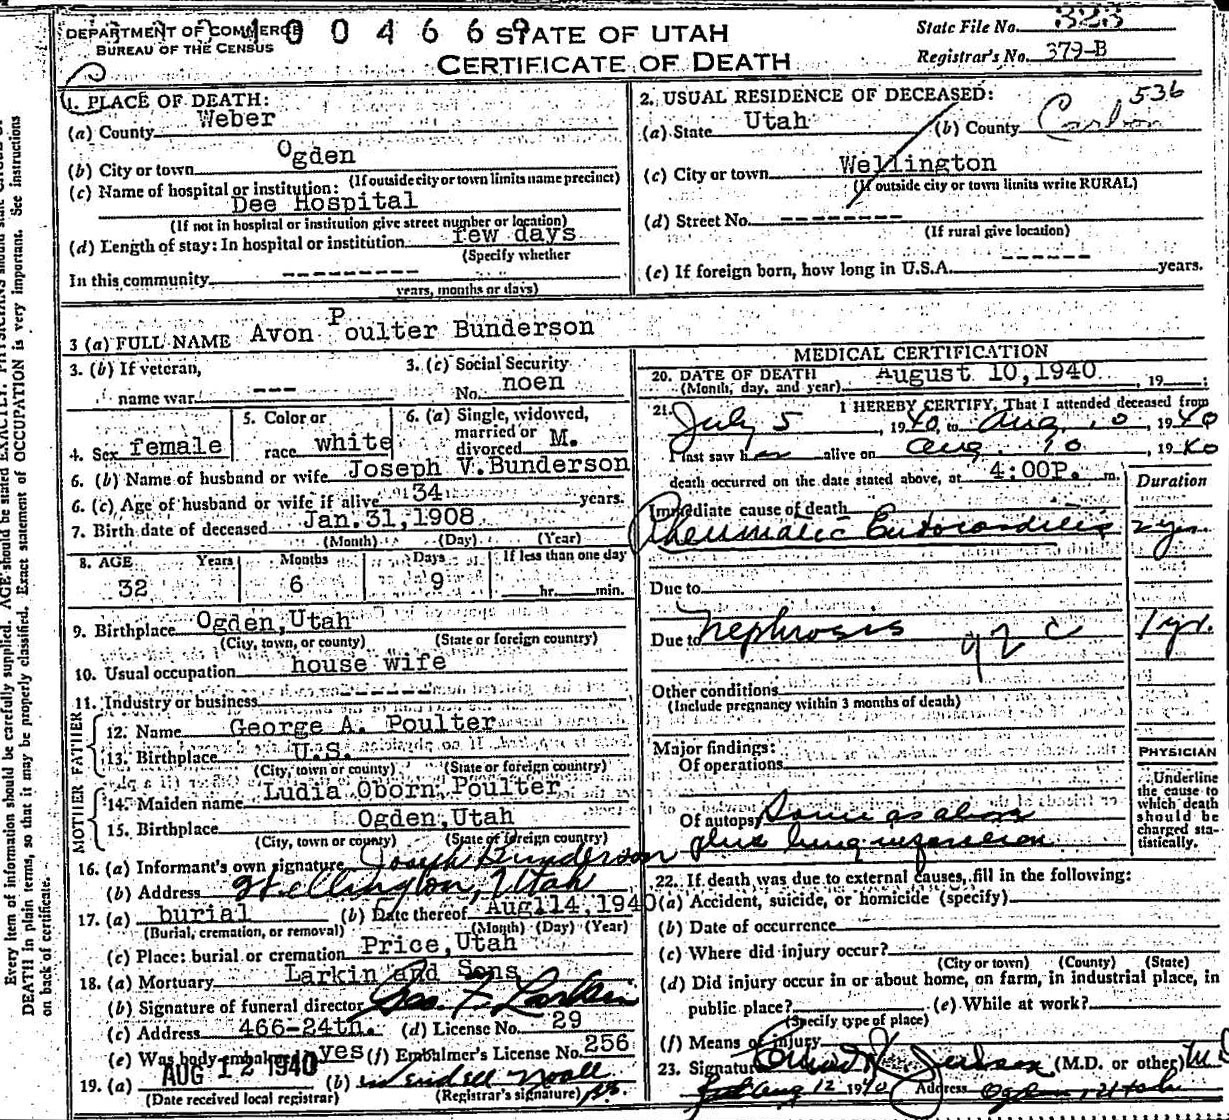 DEPARTMENT OF COMMERCE
BUREAU OF THE CENSUS
1 0 0 4 6 6 9
STATE OF UTAH
CERTIFICATE OF DEATH
State File No. 323
Registrar's No. 379-B
1. PLACE OF DEATH:
(a) County Weber
(b) City or town Ogden
(If outside city or town limits name precinct)
(c) Name of hospital or institution:
Dee Hospital
(If not in hospital or institution give street number or location)
(d) Length of stay: In hospital or institution few days
(Specify whether
In this community ---------
years, months or days)
2. USUAL RESIDENCE OF DECEASED: 536
(a) State Utah (b) County Carbon
(c) City or town Wellington
(If outside city or town limits write RURAL)
(d) Street No. --------
(If rural give location)
(e) If foreign born, how long in U.S.A. ------ years.
3 (a) FULL NAME Avon Poulter Bunderson
3. (b) If veteran,
name war --- 
3. (c) Social Security
No. noen
4. Sex female
5. Color or
race white
6. (a) Single, widowed,
married or
divorced M.
6. (b) Name of husband or wife Joseph V.Bunderson
6. (c) Age of husband or wife if alive 34 years.
7. Birth date of deceased Jan.31,1908
(Month) (Day) (Year)
8. AGE Years Months Days If less than one day
32 6 9 hr. min.
9. Birthplace Ogden,Utah
(City, town, or county) (State or foreign country)
10. Usual occupation house wife
11. Industry or business -------
FATHER
12. Name George A. Poulter
13. Birthplace U.S.
(City, town or county) (State or foreign country)
MOTHER
14. Maiden name Ludia Oborn Poulter
15. Birthplace Ogden,Utah
(City, town or county) (State or foreign country)
16. (a) Informant's own signature Joseph Bunderson
(b) Address Wellington, Utah
17. (a) burial (b) Date thereof Aug114,1940
(Burial, cremation, or removal) (Month) (Day) (Year)
(c) Place: burial or cremation Price,Utah
18. (a) Mortuary Larkin and Sons
(b) Signature of funeral director Geo. F Larkin
(c) Address 466-24th. (d) License No. 29
(e) Was body embalmed yes (f) Embalmer's License No. 256
19. (a) AUG 12 1940 (b) Wendell Noall
(Date received local registrar) (Registrar's signature)
MEDICAL CERTIFICATION
20. DATE OF DEATH August 10,1940, 19
(Month, day, and year)
21. I HEREBY CERTIFY, That I attended deceased from
July 5, 1940, to Aug. 10, 1940
I last saw her alive on Aug. 10, 1940
death occurred on the date stated above, at 4:00P. m.
Duration
Immediate cause of death
Rheumatic Endocarditis 2 yrs.
Due to
Due to Nephrosis 92 c 1 yr.
Other conditions
(Include pregnancy within 3 months of death)
Major findings:
Of operations
Of autopsy Same as above
plus lung
PHYSICIAN
Underline
the cause to
which death
should be
charged sta-
tistically.
22. If death was due to external causes, fill in the following:
(a) Accident, suicide, or homicide (specify)
(b) Date of occurrence
(c) Where did injury occur?
(City or town) (County) (State)
(d) Did injury occur in or about home, on farm, in industrial place, in
public place? (e) While at work?
(Specify type of place)
(f) Means of injury
23. Signature (M.D. or other) M.D
Aug 12 1940 Address Ogden, Utah
Every item of information should be carefully supplied. AGE should be stated EXACTLY. PHYSICIANS should state
DEATH in plain terms, so that it may be properly classified. Exact statement of OCCUPATION is very important. See instructions
on back of certificate.